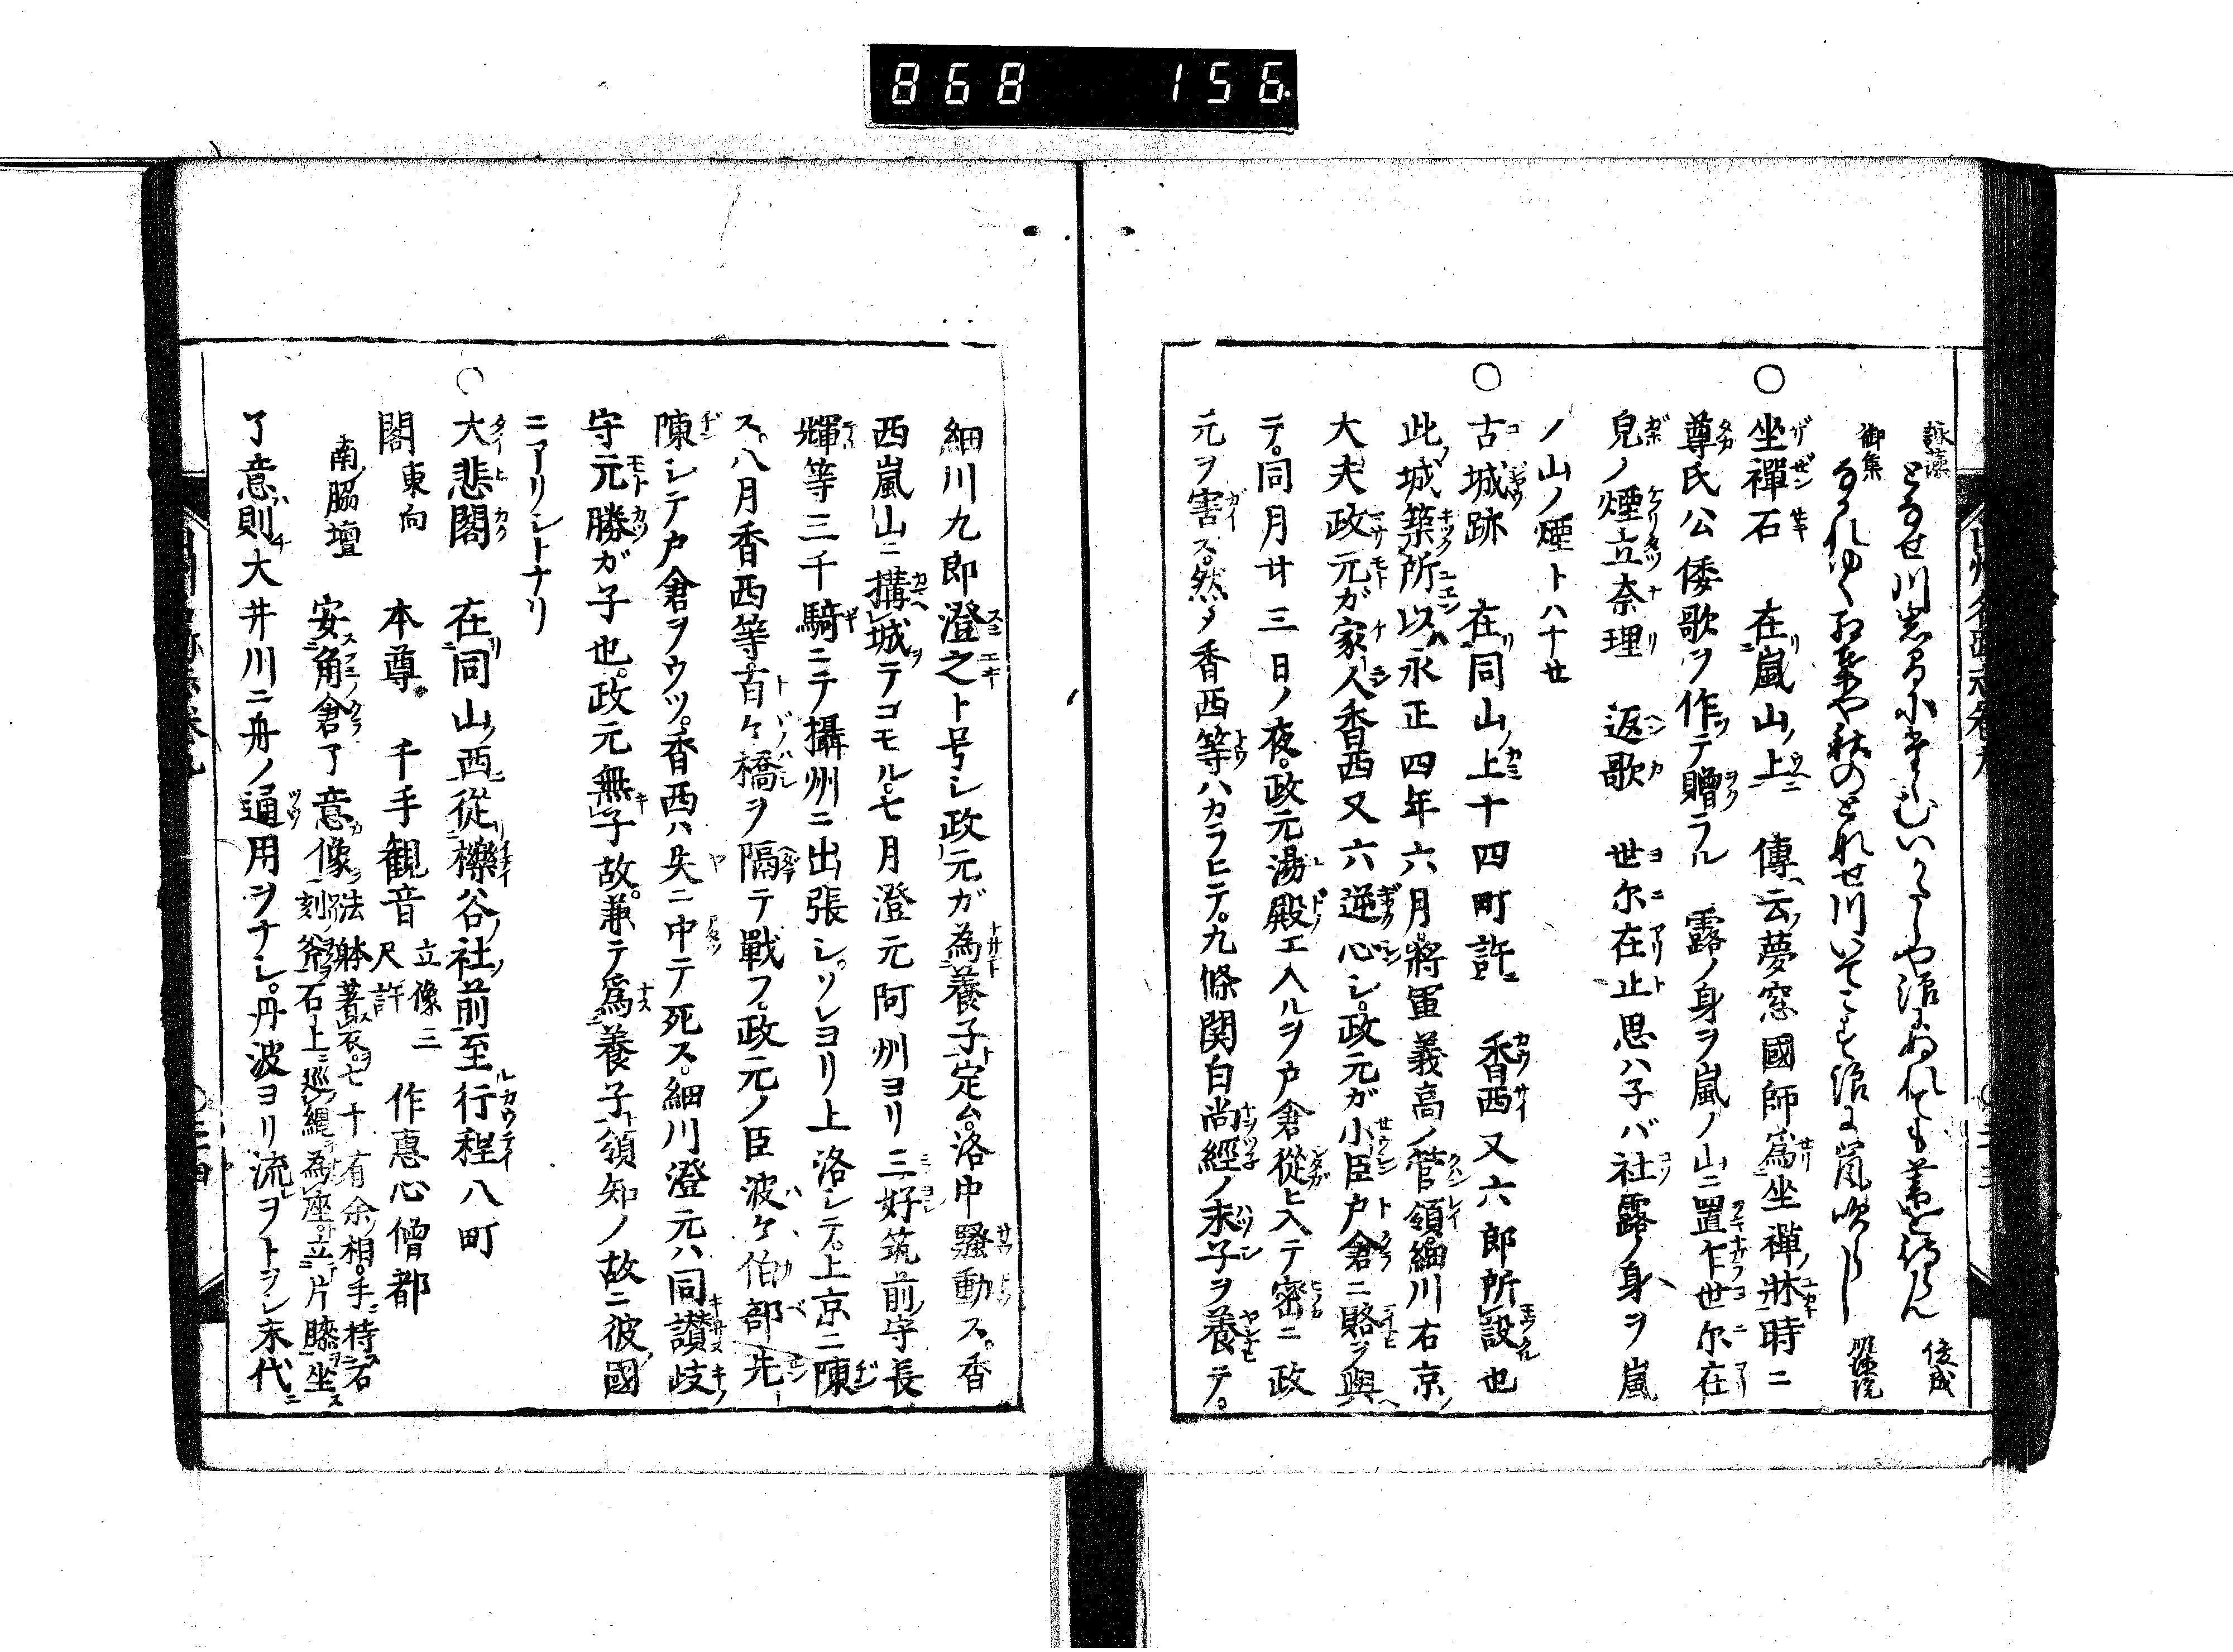 868 156
詠藻
となせ川岩
俊成
御集
ながれゆく紅葉や秋のとなせ川
坐禪石 在嵐山ノ上 傳云夢窓國師為坐禪牀時ニ
尊氏公倭歌ヲ作テ贈ラル 露ノ身ヲ嵐ノ山ニ置乍世尓在
皃ノ煙立奈理 返歌 世尓在止思ハ子バ社露ノ身ヲ嵐
ノ山ノ煙トハナせ
古城跡 在同山ノ上十四町許 香西又六郎所設也
此城築所以ハ永正四年六月將軍義高ノ管領細川右京
大夫政元ガ家人香西又六逆心シ。政元ガ小臣戸倉ニ賂ヲ與
テ。同月廿三日ノ夜。政元湯殿エ入ルヲ戸倉從ヒ入テ密ニ政
元ヲ害ス。然〆香西等ハカラヒテ。九條関白尚經ノ末子ヲ養テ。
細川九郎澄之ト号シ政元ガ為養子ト定ム。洛中騷動ス。香
西嵐山ニ搆城ヲテコモル。七月澄元阿州ヨリ三好筑前ノ守長
輝等三千騎ニテ攝州ニ出張シ。ソレヨリ上洛シテ。上京ニ陳
ス。八月香西等。百々橋ヲ隔テ戰フ。政元ノ臣波々伯部先ニ
陳シテ戸倉ヲウツ。香西ハ矢ニ中テ死ス。細川澄元ハ同讃岐
守元勝ガ子也。政元無子故。兼テ為養子。領知ノ故ニ彼國
ニアリシトナリ
大悲閣 在同山ノ西從櫟谷ノ社ノ前至行程八町
閣東向 本尊 千手観音 立像三尺許 作惠心僧都
南ノ脇壇 安角倉了意像 刻法躰著衣。七十有余ノ相。手ニ持石斧石上ニ巡縄為座立片膝坐ス
了意則大井川ニ舟ノ通用ヲナシ。丹波ヨリ流ヲトヲシ末代ニ